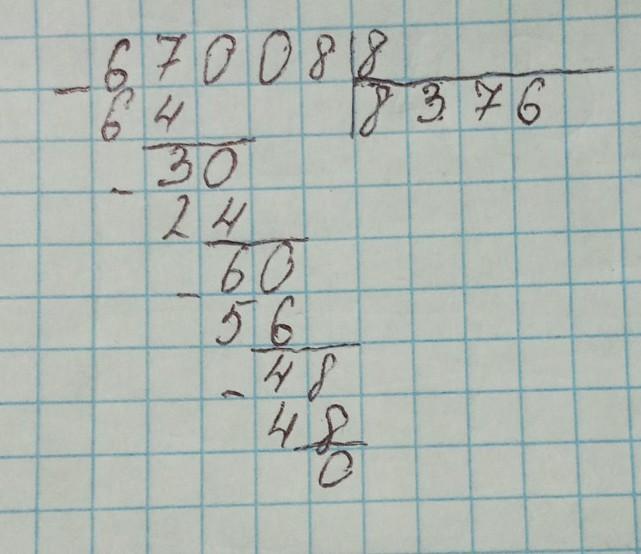 - 67008 | 8
64 | 8376
- 30
24
- 60
56
- 48
48
0